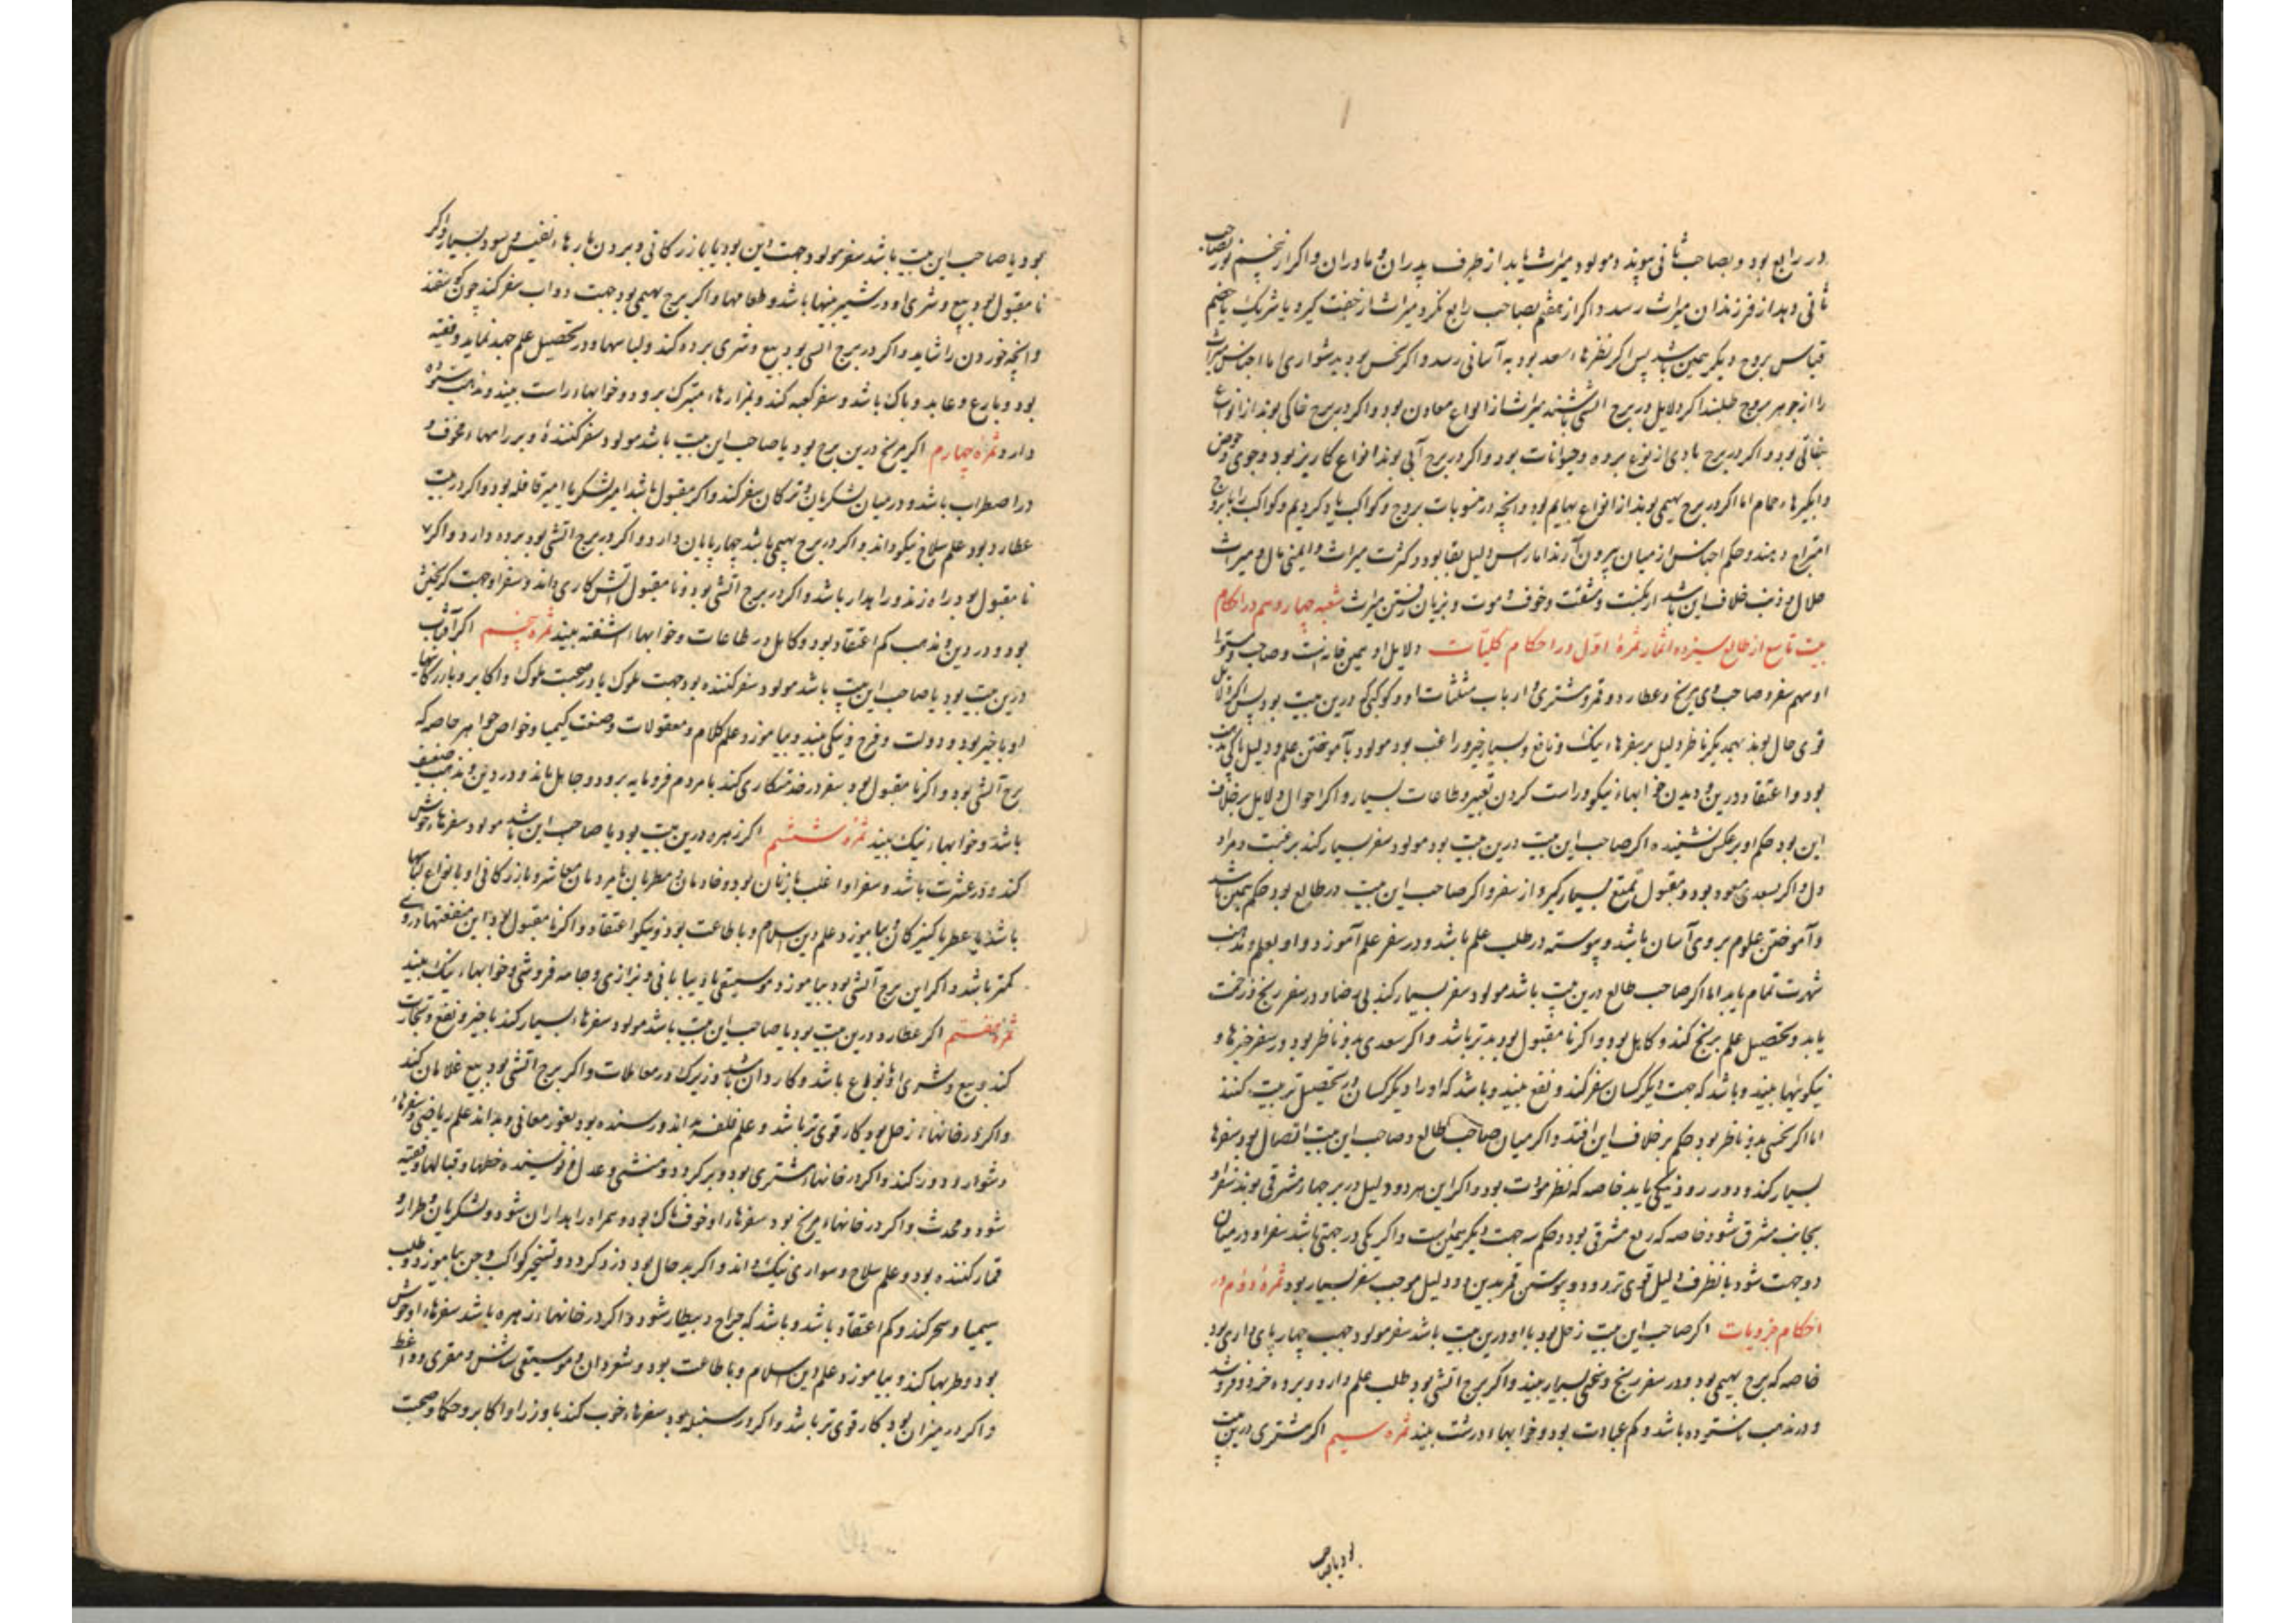 در رابع بود و بصاحب ثانی پیوندد مولود میراث یابد از طرف پدران و مادران و اکر از پنجم نور بصاحب
ثانی دهد از فرزندان میراث رسد و اکر از هفتم بصاحب رابع نکرد میراث از جفت کیرد یا شریک یا خصم
قیاس بروج دیکر همین باشد پس اکر نظرها سعد بود به آسانی رسد و اکر نحس بود بدشواری اما اجناس میراث
را از جوهر بروج طلبند اکر دلایل در برج آتشی باشند میراث از انواع معادن بود و اکر در برج خاکی بوند از انواع
نباتی بود و اکر در برج بادی از نوع برده و حیوانات بود و اکر در برج آبی بوند انواع کاریز بود و جوی و حوض
و ابکیرها و حمام اما اکر در برج بهیمی بوند از انواع بهایم بود و آنچه در منسوبات بروج و کواکب یاد کردیم و کواکب را با بروج
امتزاج دهند و حکم اجناس از میان بیرون آرند اما راس دلیل بقا بود و کثرت میراث و ایمنی مال و میراث
حلال و ذنب خلاف این باشد از نکبت و مشقت و خوف و موت و بزیان رفتن میراث شعبه چهاردهم در احکام
بیت تاسع از طالع سیزده اثمار ثمرهٔ اول در احکام کلیات دلایل او همین خانه است و صاحب و مستولی
او سهم سفر و صاحب وی مریخ و عطارد و قمر و مشتری و ارباب مثلثات او و کوکبی که درین بیت بود پس اکر دلایل
قوی حال بوند بهمدیکر ناظر دلیل بر سفرهاء نیک و نافع و بسیار خیر و راغب بود مولود بآموختن علم و دلیل پاکی مذهب
بود و اعتقاد در دین و دیدن خوابهاء نیکو و راست کردن تعبیر و طاعات بسیار و اکر احوال دلایل بر خلاف
این بود حکم او بر عکس نشیند اکر صاحب این بیت درین بیت بود مولود سفر بسیار کند برغبت و مراد
دل و اکر بسعدی مسعود بود و مقبول تمتع بسیار کیرد از سفر و اکر صاحب این بیت در طالع بود حکم همین باشد
و آموختن علوم بر وی آسان باشد و پیوسته در طلب علم باشد و در سفر علم آموزد و او بعلم و مذهب
شهرت تمام یابد اما اکر صاحب طالع درین بیت باشد مولود سفر بسیار کند بی رضا و در سفر رنج و زحمت
یابد و تحصیل علم برنج کند و کاهل بود و اکر نامقبول بود بدتر باشد و اکر سعدی بدو ناظر بود در سفر خیرها و
نیکوییها بیند و باشد که جهت دیکر کسان سفر کند و نفع بیند و باشد که او را دیکر کسان در تحصیل تربیت کنند
اما اکر نحسی بدو ناظر بود حکم بر خلاف این افتد و اکر میان صاحب طالع و صاحب این بیت اتصال بود سفرها
بسیار کند و در رو نیکی یابد خاصه که نظر مودت بود و اکر این هر دو دلیل در برجها مشرقی بوند سفر او
بجانب مشرق شود خاصه که ربع مشرقی بود و حکم سه جهت دیکر همین است و اکر یکی در جهتی باشد سفر او در میان
دو جهت شود یا بطرف دلیل قوی تر رود و پیوستن قمر بدین دو دلیل موجب سفر بسیار بود ثمرهٔ دوم در
احکام جزویات اکر صاحب این بیت زحل بود یا او درین بیت باشد سفر مولود جهت چهارپای داری بود
خاصه که برج بهیمی بود و در سفر رنج و سختی بسیار بیند و اکر برج آتشی بود طلب علم دارد و برده خرد و فروشد
و در مذهب ناستوده باشد و کم عبادت بود و خوابهاء درشت بیند ثمره سیم اکر مشتری درین بیت
بود یا صاحب
بود یا صاحب این بیت باشد سفر مولود جهت دین بود یا بازرکانی و بردن بارهاء نفیس و سود بسیار و اکر
نامقبول بود بیع و شری او در شیرینیها باشد و طعامها و اکر برج بهیمی بود جهت دواب سفر کند چون کوسفند
و آنچه خوردن را شاید و اکر در برج انسی بود بیع و شری برده کند و لباسها و در تحصیل علم جهد نماید و فقیه
بود و بارع و عابد و پاک باشد و سفر کعبه کند و بمزارهاء متبرک برود و خوابهاء راست بیند و مذهب ستوده
دارد ثمرهٔ چهارم اکر مریخ درین برج بود یا صاحب این بیت باشد مولود سفر کنندهٔ و بر راهها مخوف و
در اضطراب باشد و در میان لشکریان و ترکان سفر کند و اکر مقبول باشد امیر لشکر یا امیر قافله بود و اکر در بیت
عطارد بود علم سلاح نیکو داند و اکر در برج بهیمی باشد چهارپایان دارد و اکر در برج آتشی بود برده دارد و اکر
نامقبول بود راه زند و راهدار باشد و اکر در برج آتشی بود و نامقبول آتش کاری داند و سفر او جهت کریختن
بود و در دین و مذهب کم اعتقاد بود و کاهل در طاعات و خوابهاء آشفته بیند ثمره پنجم اکر آفتاب
درین بیت بود یا صاحب این بیت باشد مولود سفر کننده بود جهت ملوک یا در صحبت ملوک و اکابر و بازرکانیها
او با خیر بود و دولت و فرح و نیکی بیند و بیاموزد علم کلام و معقولات و صنعت کیمیا و خواص جواهر خاصه که
برج آتشی بود و اکر نامقبول بود سفر در خدمتکاری کند با مردم فرومایه برود و جاهل ماند و در دین و مذهب ضعیف
باشد و خوابهاء نیک بیند ثمره ششم اکر زهره درین بیت بود یا صاحب این باشد مولود سفرهاء خوش
کند و در عشرت باشد و سفر او اغلب با زنان بود و خادمان و مطربان یا مردمان معاشر و بازرکانی او بانواع لباسها
باشد یا عطر یا کنیزکان و بیاموزد علم دین اسلام و با طاعت بود و نیکو اعتقاد و اکر نامقبول بود این منفعتها در وی
کمتر باشد و اکر این برج آتشی بود بیاموزد موسیقی یا دیبا بافی و بزازی و جامه فروشی و خوابهاء نیک بیند
ثمره هفتم اکر عطارد درین بیت بود یا صاحب این بیت باشد مولود سفرهاء بسیار کند با خیر و نفع و تجارت
کند و بیع و شری او بانواع باشد و کاردان باشد و زیرک در معاملات و اکر برج آتشی بود بیع غلامان کند
و اکر در خانهاء زحل بود کار قوی تر باشد و علم فلسفه داند و رسنده بود بغور معانی و بداند علم ریاضی و سفرهاء
دشوار و دور کند و اکر در خانهاء مشتری بود دبیر کردد و منشی و عدل و نویسنده خطها و قبالها و فقیه
شود و محدث و اکر در خانهاء مریخ بود سفرهاء او خوفناک بود و همراه راهداران شود و لشکریان و طرار و
قمار کننده بود و علم سلاح و سواری نیک داند و اکر بد حال بود دزد کردد و تسخیر کواکب و جن بیاموزد و طلب
سیمیا و سحر کند و کم اعتقاد باشد و باشد که جراح و بیطار شود و اکر در خانهاء زهره باشد سفرهاء او خوش
بود و طربها کند و بیاموزد علم دین اسلام و با طاعت بود و شعردان و موسیقی شناس و مقری و واعظ
و اکر در میزان بود کار قوی تر باشد و اکر در سنبله بود سفرهاء خوب کند با وزرا و اکابر و حکما و صحبت